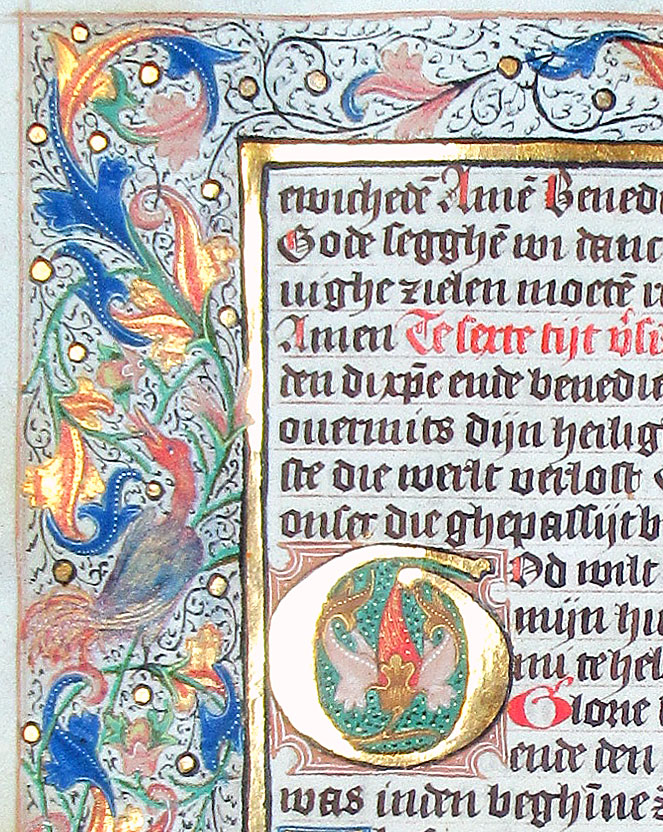 ewichedē Amē Bened
Gode segghē wi danc
uighe zielen moetē
Amen Te sexte tijt v̓s
den di xpē ende benedie
ouermits dijn heilig
ste die werlt verlost
onser die ghepassijt
God wilt
mijn hu
mi te hel
Glorie
ende den
was inden beghīne